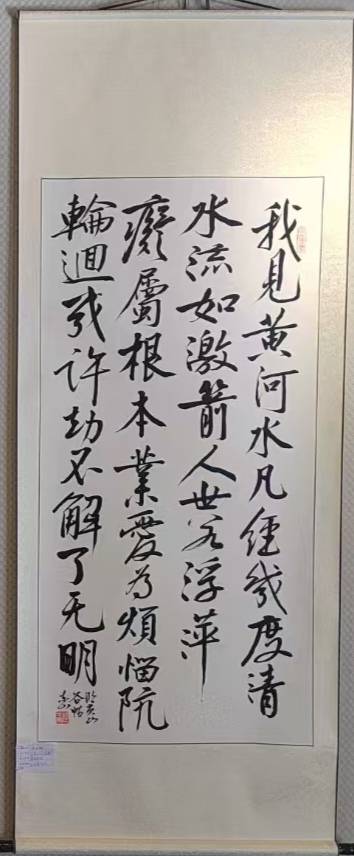 我見黄河水凡經幾度清
水流如激箭人世若浮萍
癡屬根本業愛為煩惱阬
輪迴幾許劫不解了无明